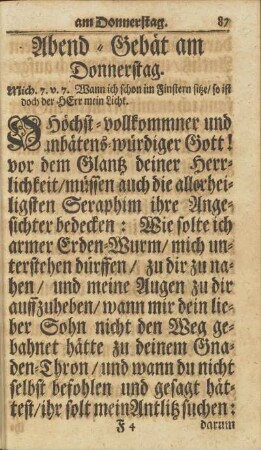 am Donnerstag. 87
Abend-Gebät am
Donnerstag.
Mich. 7. v. 7. Wann ich schon im Finstern sitze/ so ist
doch der HErr mein Licht.
O Höchst-vollkommner und
anbätens-würdiger Gott!
vor dem Glantz deiner Herr-
lichkeit/ müssen auch die allerhei-
ligsten Seraphim ihre Ange-
sichter bedecken: Wie solte ich
armer Erden-Wurm/ mich un-
terstehen dürffen/ zu dir zu na-
hen/ und meine Augen zu dir
auffzuheben/ wann mir dein lie-
ber Sohn nicht den Weg ge-
bahnet hätte zu deinem Gna-
den-Thron/ und wann du nicht
selbst befohlen und gesagt hät-
test/ ihr solt mein Antlitz suchen:
F 4 darum